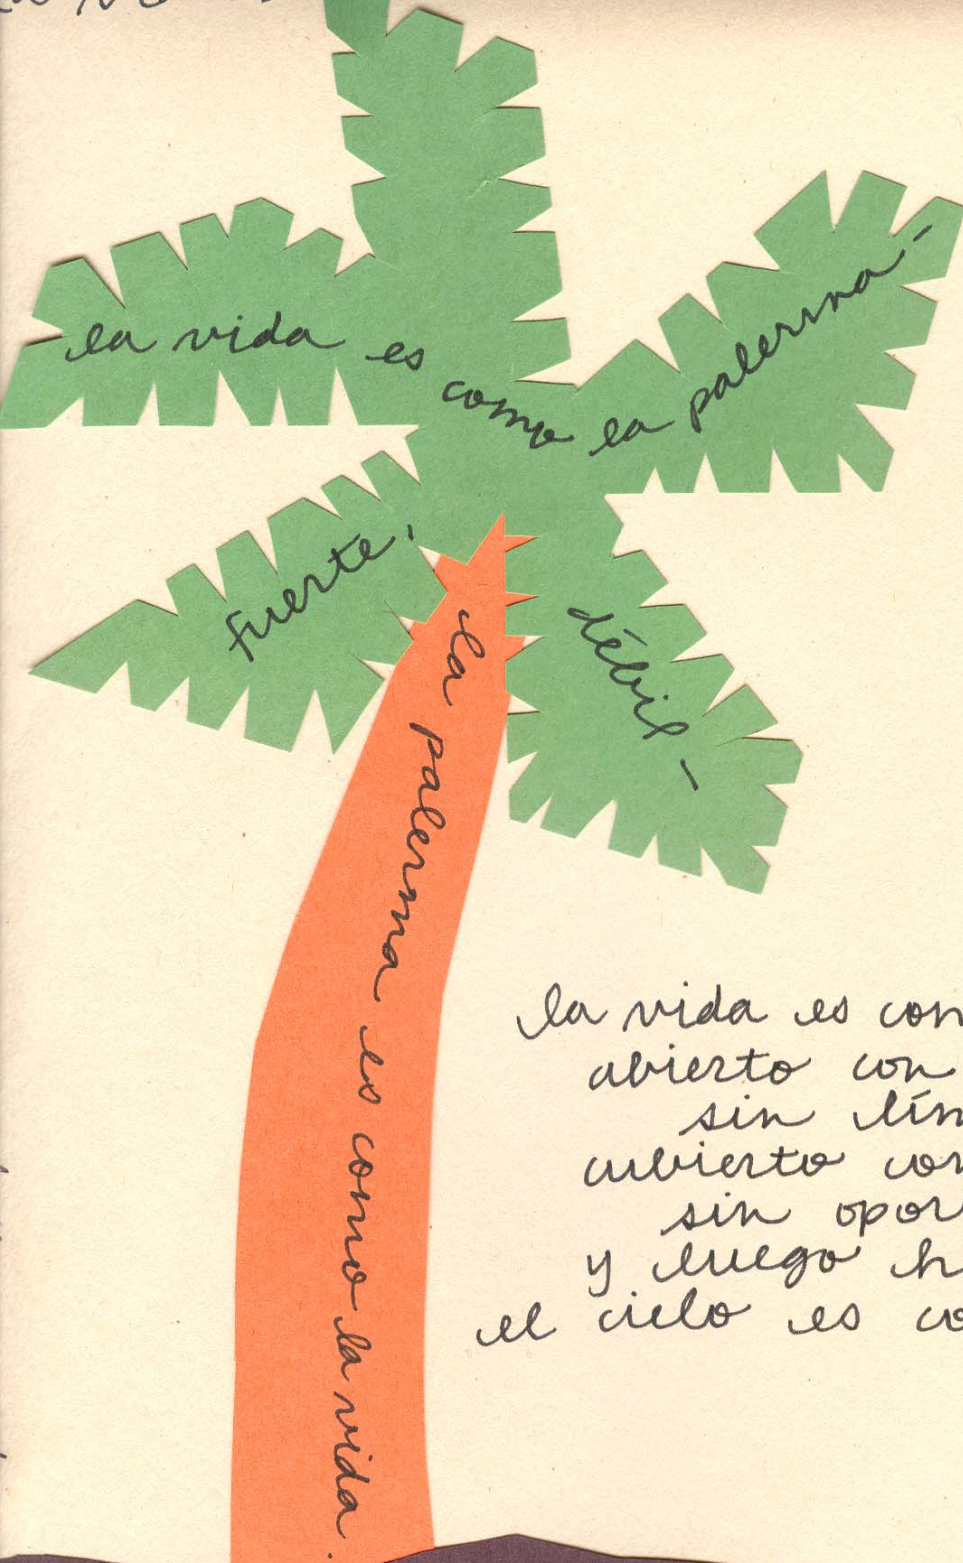 la vida es como la palerma-
fuerte,
débil-
la palerma es como la vida.
la vida es com
abierto con
sin lím
cubierto con
sin opor
y luego h
el cielo es co